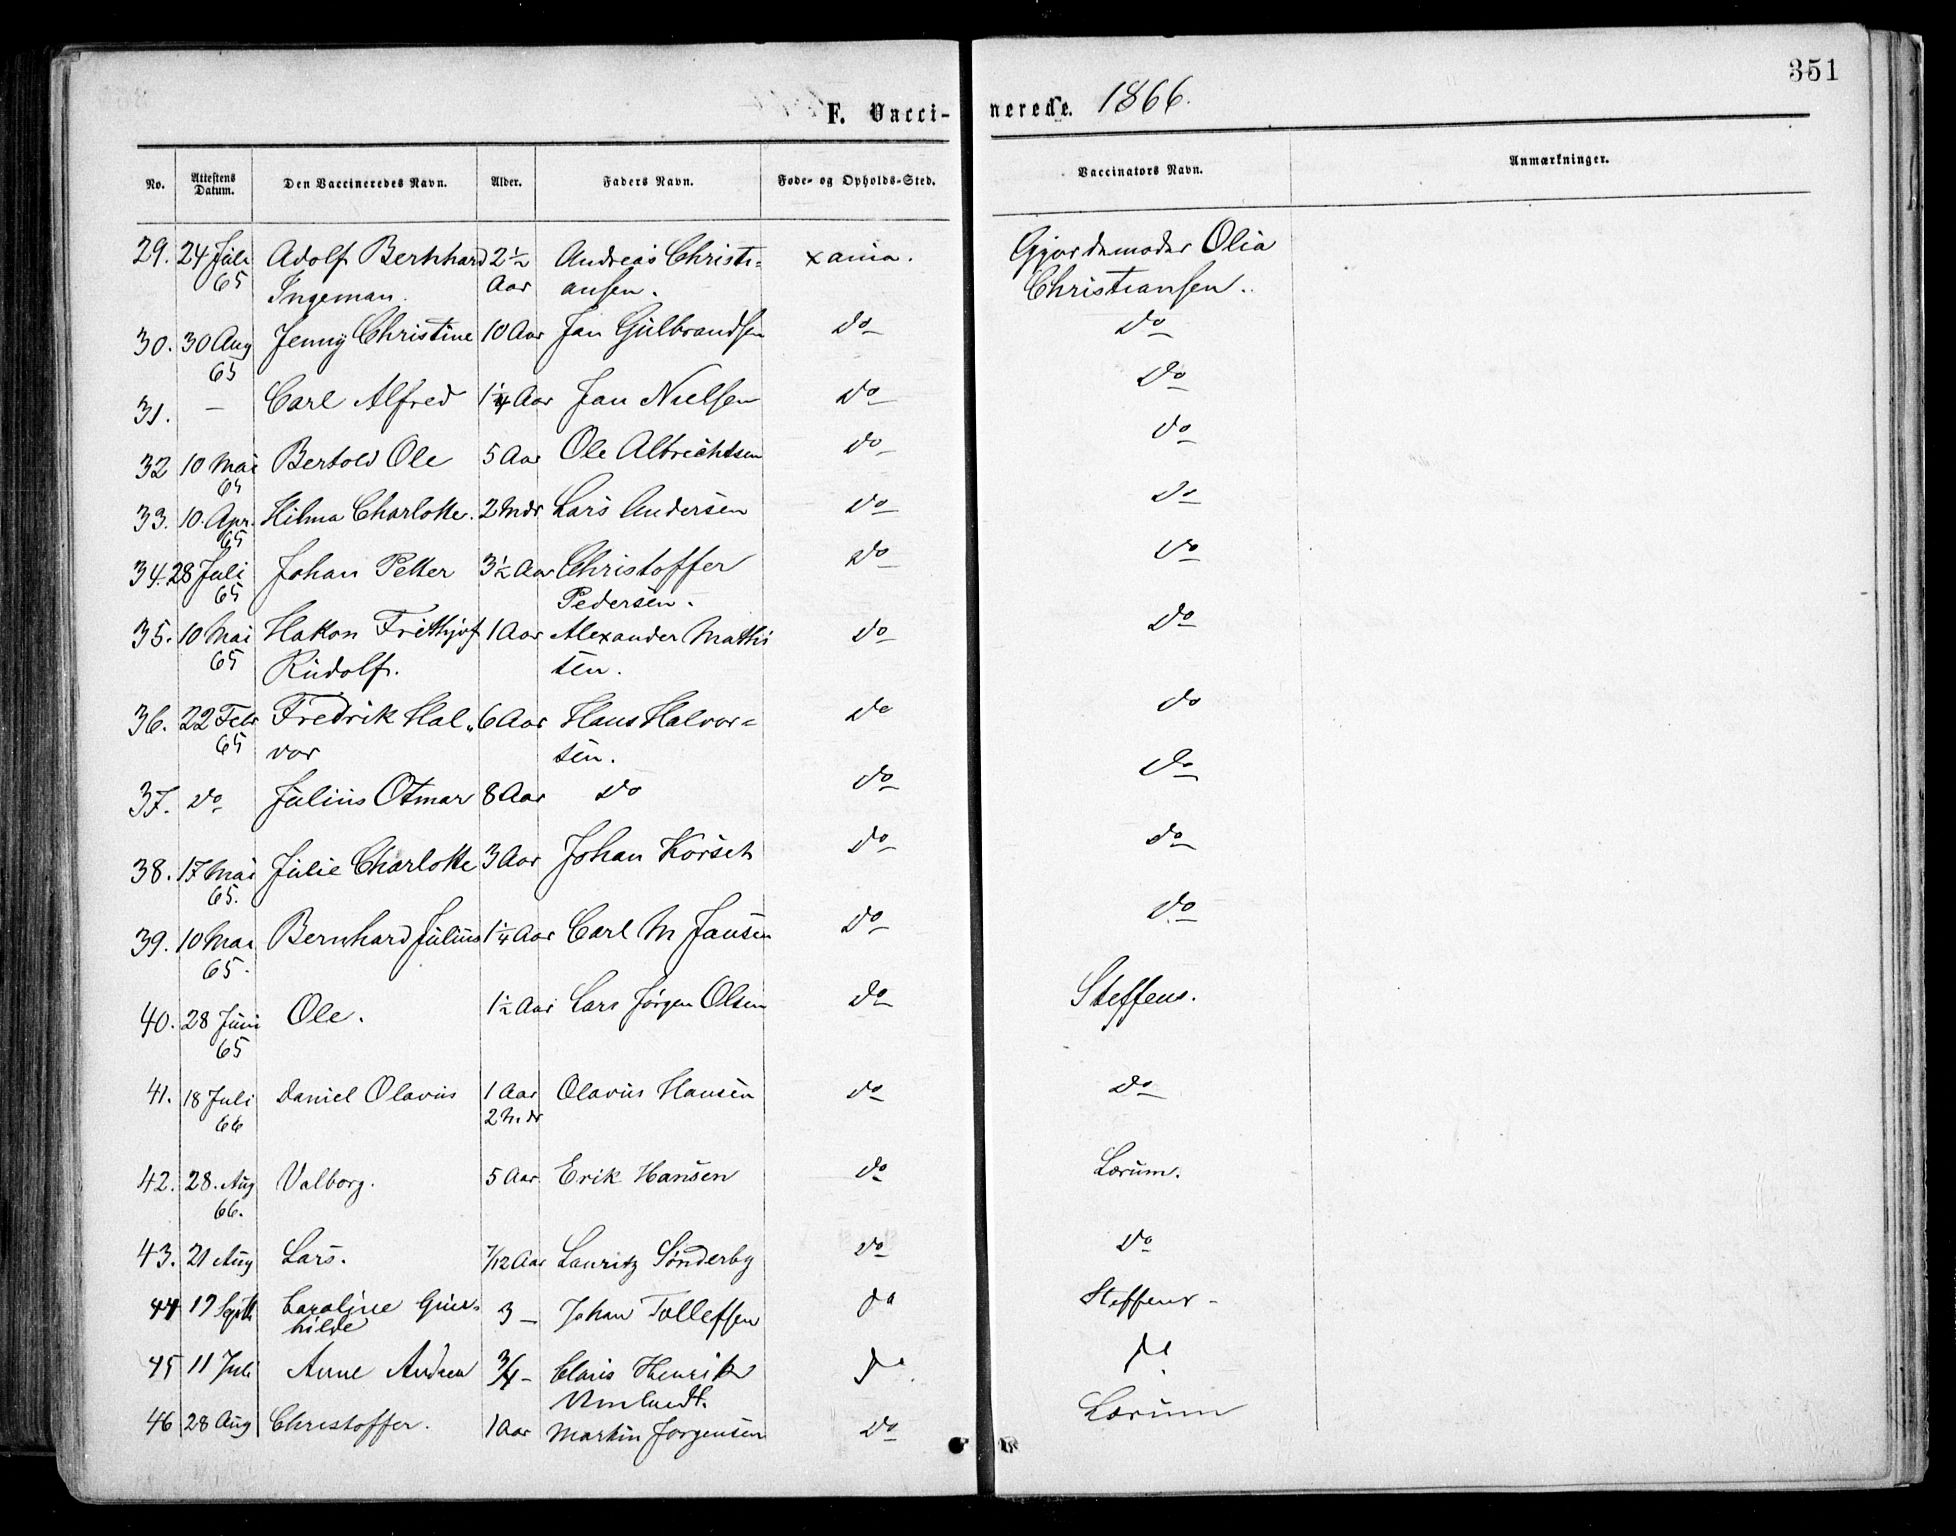 351
F. Vaccinerede. 1866.
No. Attestens Datum. Den Vaccineredes Navn. Alder. Faders Navn. Føde- og Opholds-Sted. Vaccinators Navn. Anmærkninger.
29. 24 Juli Adolf Bernhard 2½ Andreas Christi= xania. Gjordemoder Olia
65 Ingeman. Aar ansen. Christiansen.
30. 30 Aug Jenny Christine 10 Aar Jan Gulbrandsen do do
65
31. — Carl Alfred 1¼ Aar Jan Nielsen do do
32 10 Mai Bertold Ole 5 Aar Ole Albrechtsen do do
65
33. 10 Apr. Hilma Charlotte. 2 Mdr Lars Andersen do do
65
34. 28 Juli Johan Petter 3½ Aar Christoffer do do
65 Pedersen.
35. 10 Mai Hakon Frithjof 1 Aar Alexander Mathi do do
65 Rudolf. sen.
36. 22 Febr Fredrik Hal„ 6 Aar Hans Halvor= do do
65 vor sen.
37. do Julius Otmar 8 Aar do do do
38. 17 Mai Julie Charlotte 3 Aar Johan Korseth do do
65.
39. 10 Mai Bernhard Julius 1¼ Aar Carl M Jansen do do
65.
40. 28 Juni Ole. 1½ Aar Lars Jørgen Olsen do Steffens.
65
41. 18 Juli Daniel Olavus 1 Aar Olavus Hansen do do
66 2 Mdr
42. 28. Aug Valborg. 5 Aar Erik Hansen do Lorum.
66.
43. 21 Aug Lars. 7/12 Aar Lauritz Sønderby do do
44 19 Septb Caroline Gun- 3 — Johan Tollefsen do Steffens -
hilde
45 11 Juli Anne Andrea 3/4 - Claus Henrik do do
46 28 Aug Christoffer. 1 Aar Martin Jørgensen do Lorum